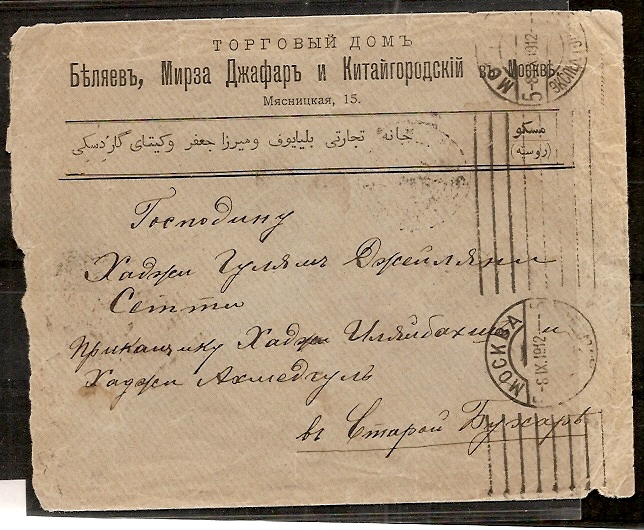 ТОРГОВЫЙ ДОМЪ
Бѣляевъ, Мирза Джафаръ и Китайгородскій въ Москвѣ,
Мясницкая, 15.
خانه تجارتی بلیایوف ومیرزا جعفر وکیتای گاردسکی
مسکو
(روسیه)
Господину
Хаджи Гулямъ Джейляни
Сетти
прикащику Хаджи и
Хаджи Ахмедкуль
въ Старой Бухарѣ
МОСКВА
-8 IX.1912